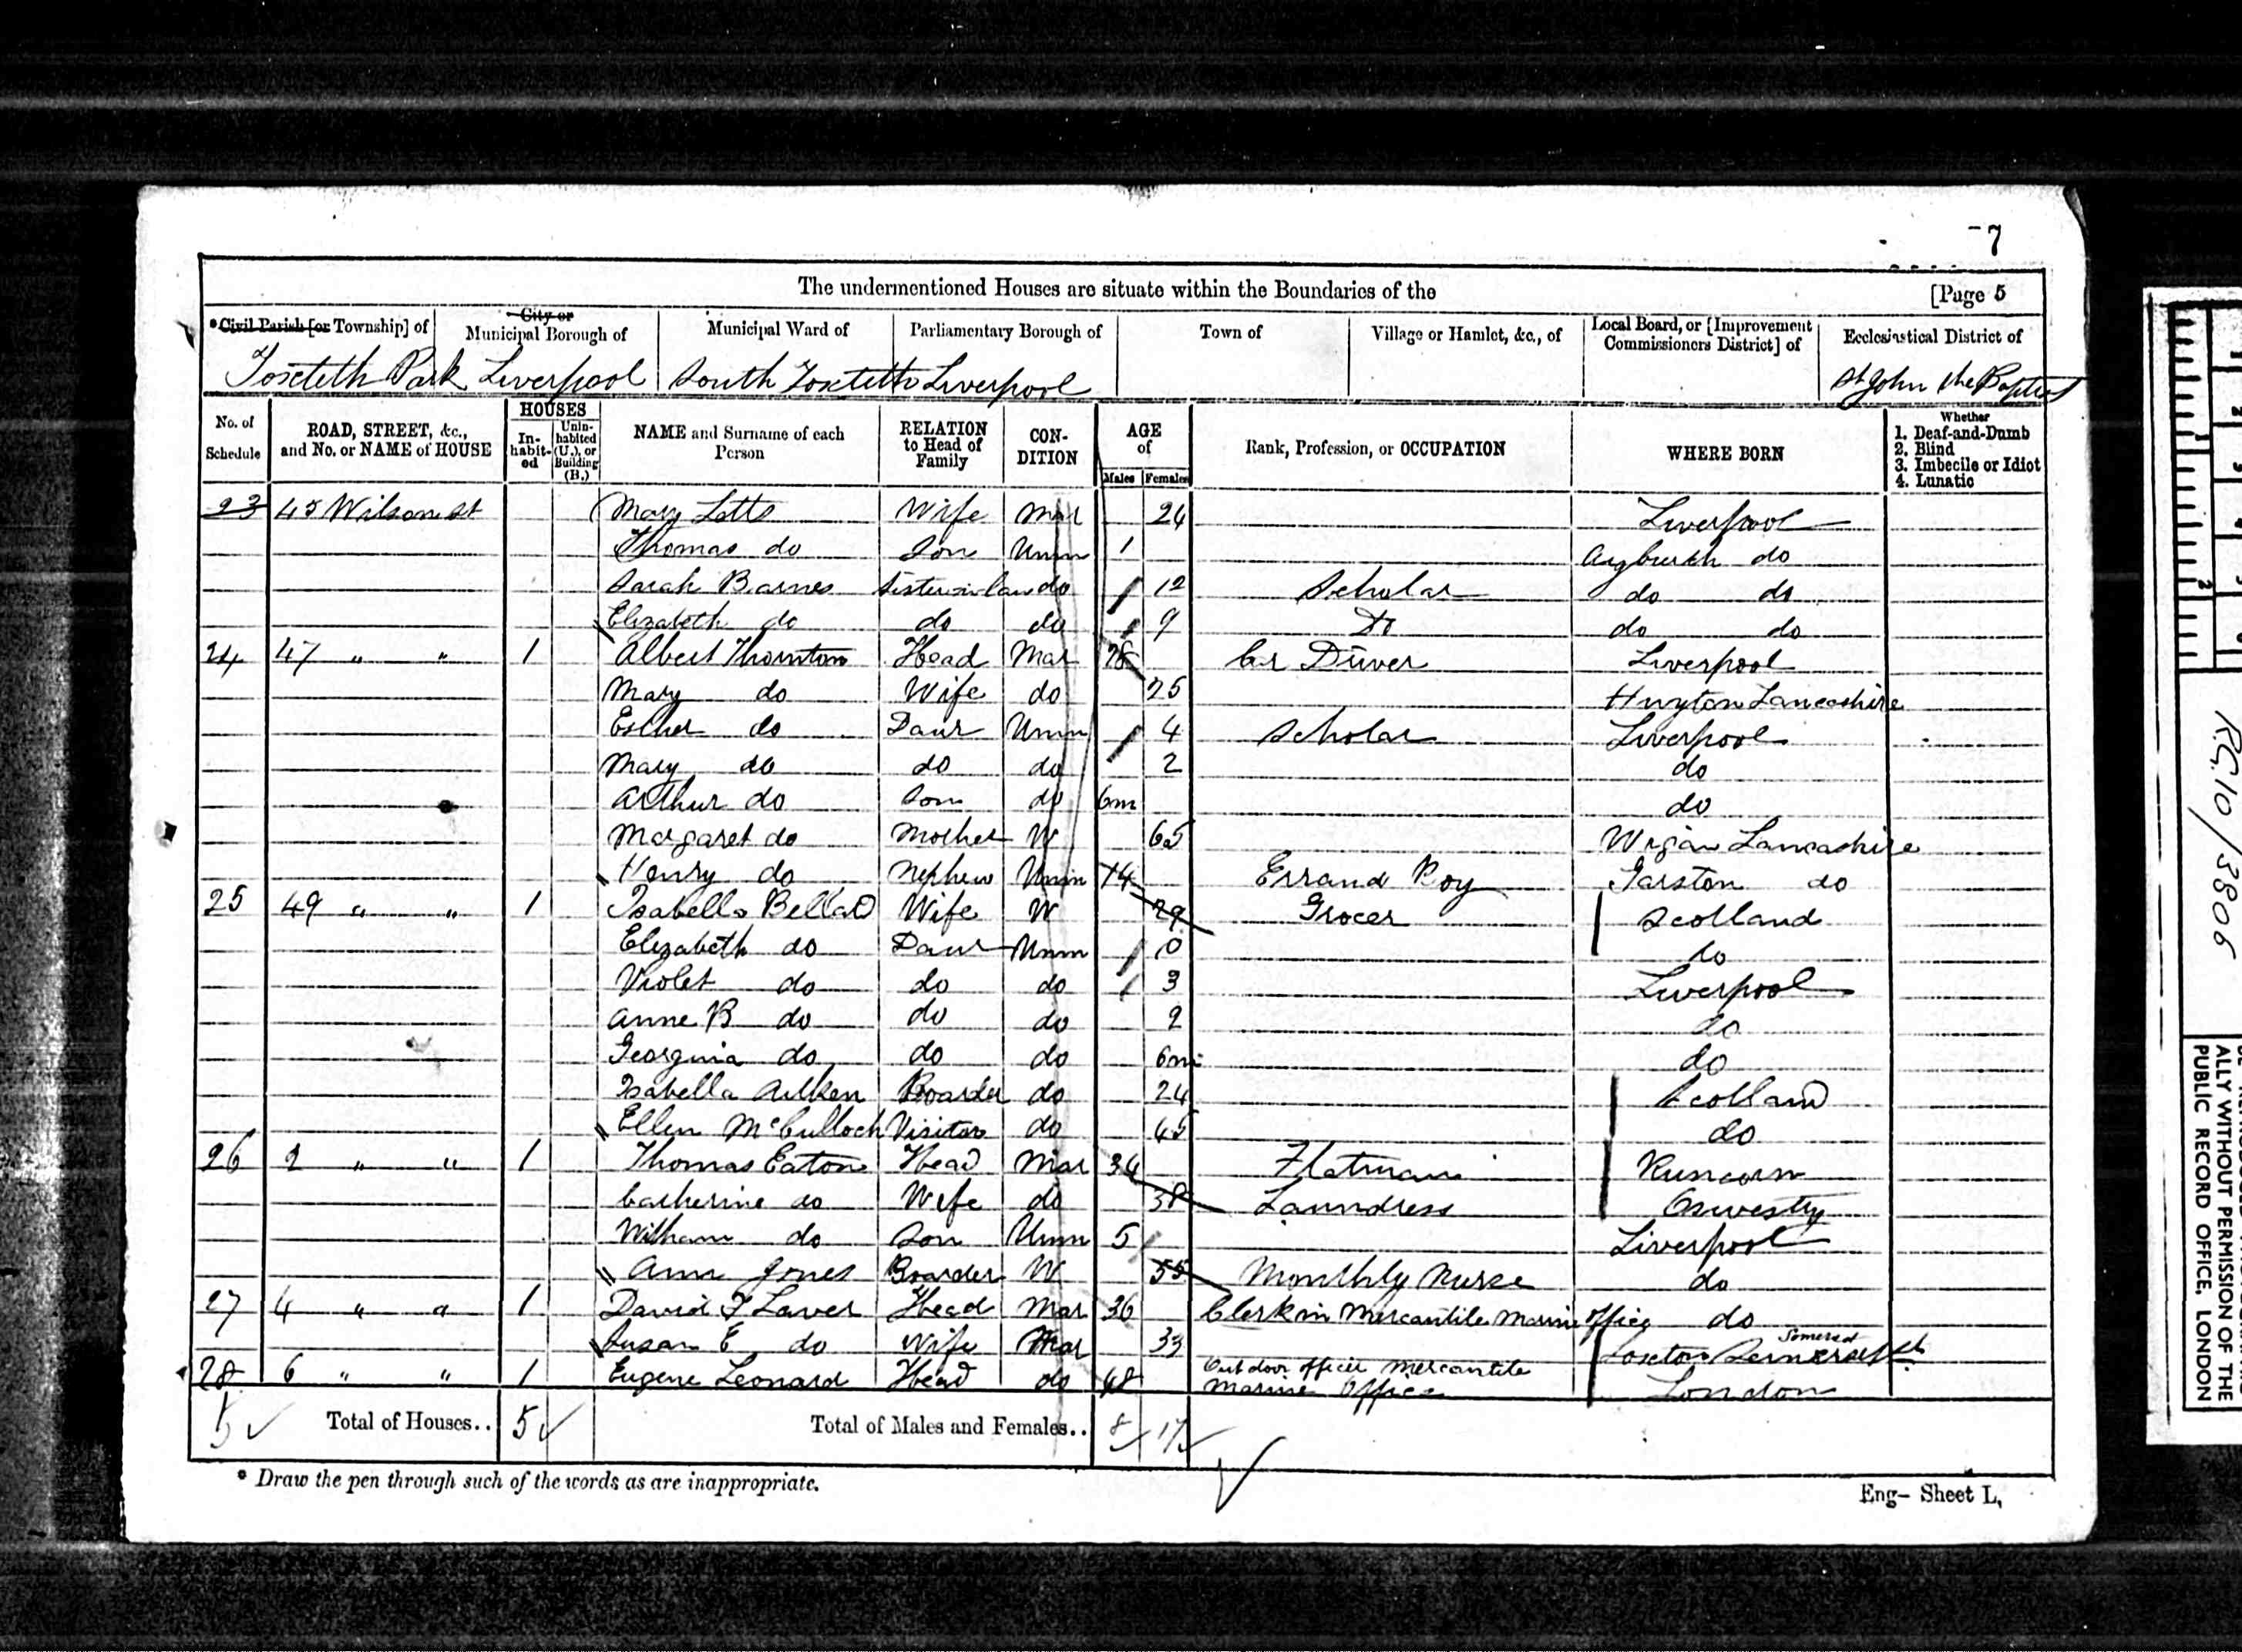 7
The undermentioned Houses are situate within the Boundaries of the [Page 5
*Civil Parish [or Township] of City or Municipal Borough of Municipal Ward of Parliamentary Borough of Town of Village or Hamlet, &c., of Local Board, or [Improvement Commissioners District] of Ecclesiastical District of
Toxteth Park Liverpool South Toxteth Liverpool St John the Baptist
No. of Schedule ROAD, STREET, &c., and No. or NAME of HOUSE HOUSES In-habit-ed Unin-habited (U.), or Building (B.) NAME and Surname of each Person RELATION to Head of Family CON-DITION AGE of Males Females Rank, Profession, or OCCUPATION WHERE BORN Whether 1. Deaf-and-Dumb 2. Blind 3. Imbecile or Idiot 4. Lunatic
23 45 Wilson st Mary Lotts Wife Mar 24 Liverpool
Thomas do Son Unm 1 do
Sarah Barnes Sister in law do 12 Scholar do do
Elizabeth do do do 9 Do do do
24 47 " " 1 Albert Thornton Head Mar 28 Car Driver Liverpool
Mary do Wife do 25 Huyton Lancashire
Esther do Daur Unm 4 Scholar Liverpool
Mary do do do 2 do
Arthur do Son do 6m do
Margaret do Mother W 65 Wigan Lancashire
Henry do Nephew Unm 14 Errand Boy Garston do
25 49 " " 1 Isabella Wife W 29 Grocer Scotland
Elizabeth do Daur Unm do
Violet do do do 3 Liverpool
Anne B do do do 2 do
Georgina do do do 6m do
Isabella Aitken Boarder do 24 Scotland
Ellen McCulloch Visitor do 45 do
26 2 " " 1 Thomas Eaton Head Mar 34 Flatman Runcorn
Catherine do Wife do 38 Laundress Oswestry
William do Son Unm 5 Liverpool
Ann Jones Boarder W 55 Monthly Nurse do
27 4 " " 1 David Laver Head Mar 36 Clerk in Mercantile Marine Office do
Susan E do Wife Mar 33 Somerset
28 6 " " 1 Eugene Leonard Head do 48 Out door officer Mercantile Marine Office London
5 Total of Houses.. 5 Total of Males and Females.. 8 17
* Draw the pen through such of the words as are inappropriate.
Eng- Sheet L,
RG.10/3806
ALLY WITHOUT PERMISSION OF THE
PUBLIC RECORD OFFICE, LONDON